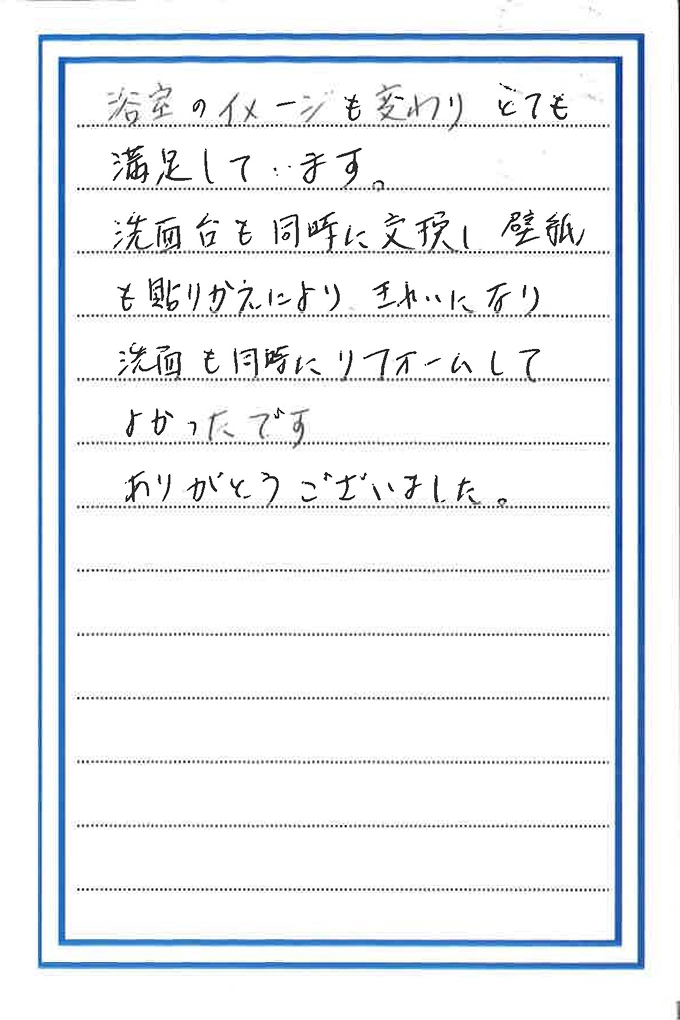 浴室のイメージも変わり とても
満足しています。
洗面台も同時に交換し 壁紙
も貼りかえにより、きれいになり
洗面も同時にリフォームして
よかったです
ありがとうございました。